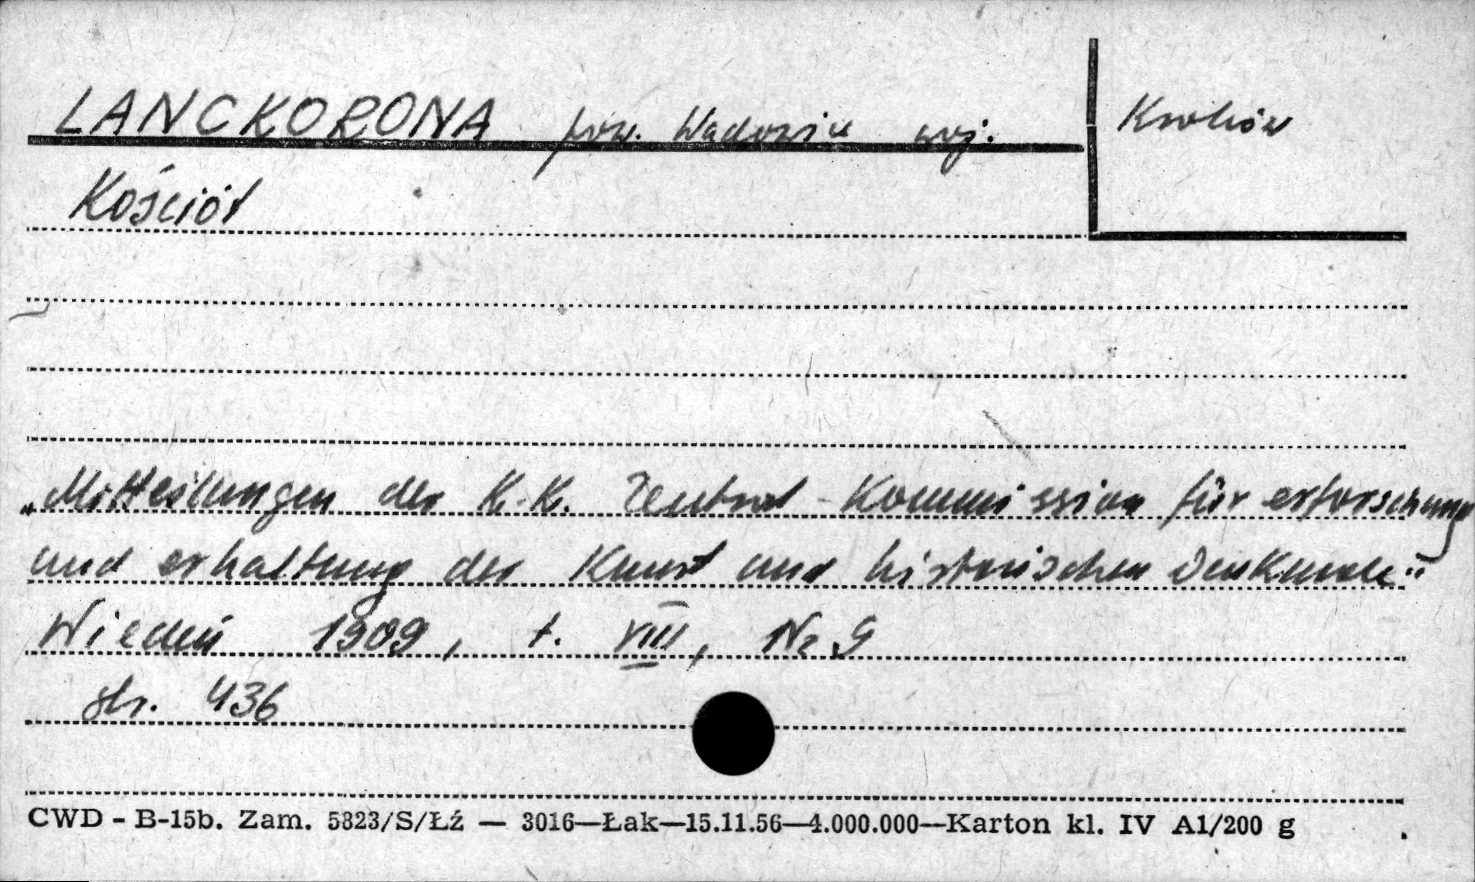 LANCKORONA pow. Wadowice woj. Kraków
Kościół
„Mitteilungen der K.K. Zentral-Kommission für erforschung
und erhaltung der Kunst und historischen Denkmale"
Wiedeń 1909, t. VIII, Nr 9
str. 436
CWD - B-15b. Zam. 5823/S/Łź — 3016—Łak—15.11.56—4.000.000—Karton kl. IV A1/200 g